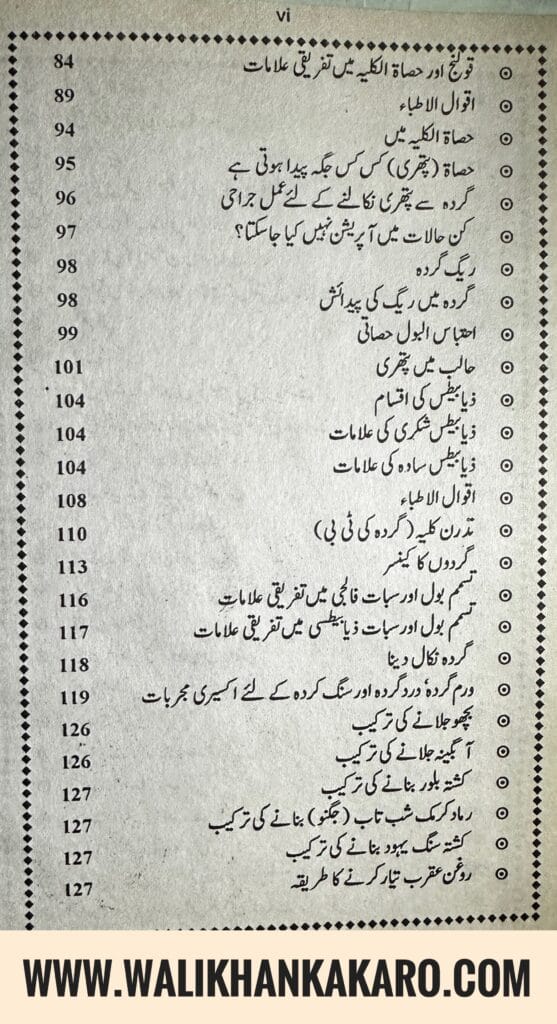 vi
قولنج اور حصاۃ الکلیہ میں تفریقی علامات 84
اقوال الاطباء 89
حصاۃ الکلیہ میں 94
حصاۃ (پتھری) کس کس جگہ پیدا ہوتی ہے 95
گردہ سے پتھری نکالنے کے لئے عمل جراحی 96
کن حالات میں آپریشن نہیں کیا جاسکتا؟ 97
ریگ گردہ 98
گردہ میں ریگ کی پیدائش 98
احتباس البول حصاتی 99
حالب میں پتھری 101
ذیابیطس کی اقسام 104
ذیابیطس شکری کی علامات 104
ذیابیطس سادہ کی علامات 104
اقوال الاطباء 108
تدرن کلیہ (گردہ کی ٹی بی) 110
گردوں کا کینسر 113
تسمم بول اور سبات فالجی میں تفریقی علامات 116
تسمم بول اور سبات ذیابیطسی میں تفریقی علامات 117
گردہ نکال دینا 118
ورم گردہ' درد گردہ اور سنگ گردہ کے لئے اکسیری مجربات 119
بچھو جلانے کی ترکیب 126
آبگینہ جلانے کی ترکیب 126
کشتہ بلور بنانے کی ترکیب 127
رماد کرمک شب تاب (جگنو) بنانے کی ترکیب 127
کشتہ سنگ یہود بنانے کی ترکیب 127
روغن عقرب تیار کرنے کا طریقہ 127
WWW.WALIKHANKAKARO.COM